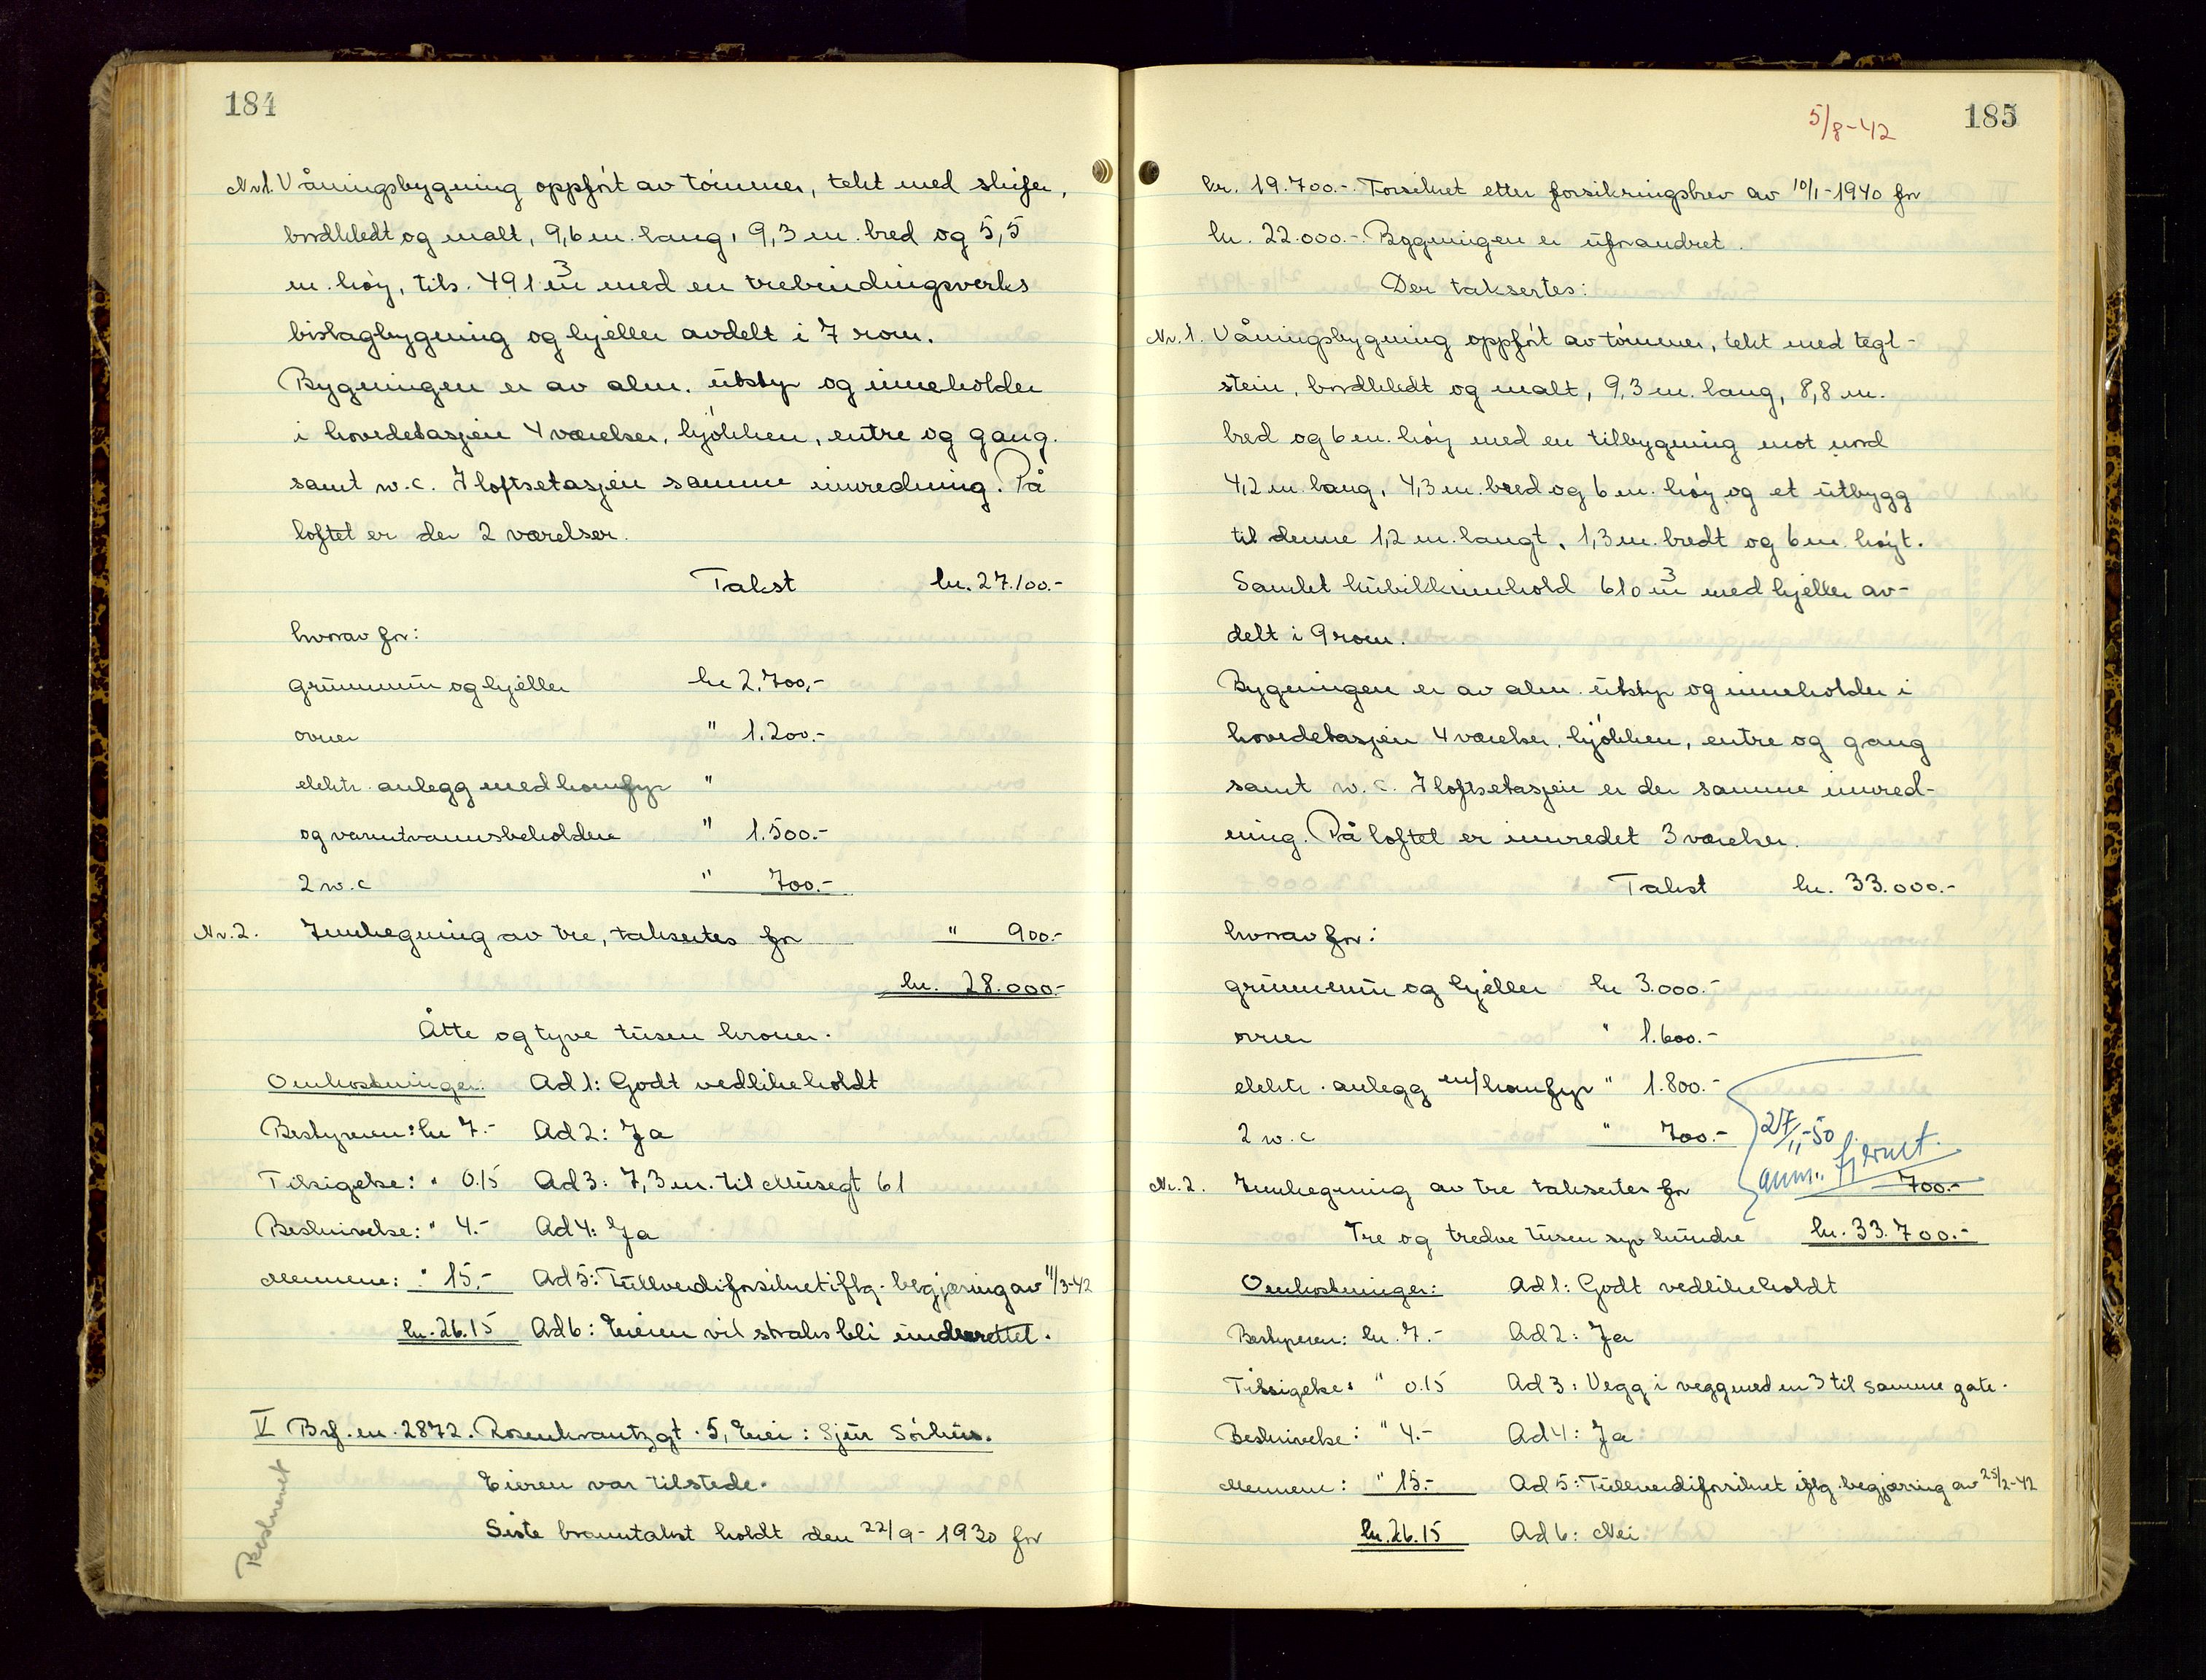 184
Nr 1. Våningsbygning oppført av tømmer, tekt med skifer,
bordkledt og malt, 9,6 m. lang, 9,3 m. bred og 5,5
m. høy, tils. 491 m3 med en trebindingsverks
bislagbygning og kjeller avdelt i 7 rom.
Bygningen er av alm. utstyr og inneholder
i hovedetasjen 4 værelser, kjøkken, entre og gang.
samt w.c. I loftsetasjen samme innredning. På
loftet er der 2 værelser.
Takst kr. 27.100.-
hvorav for:
grunnmur og kjeller kr 2.700,-
ovner " 1.200.-
elektr. anlegg med komfyr "
og varmtvannsbeholdere " 1.500.-
2 w.c " 700.-
Nr. 2. Innhegning av tre, takseres for " 900.-
kr. 28.000.-
Åtte og tyve tusen kroner.
Omkostninger: Ad 1: Godt vedlikeholdt
Bestyreren: kr 7.- Ad 2: Ja
Tilsigelse: " 0.15 Ad 3: 7,3 m. til Musegt 61
Beskrivelse: " 4.- Ad 4: Ja
Mennene: " 15.- Ad 5: Fullverdiforsikret iflg. begjæring av 11/3-42
kr. 26.15 Ad 6: Eieren vil straks bli underrettet.
V Brf. nr. 2872. Rosenkrantzgt. 5, Eier: Sjur Sørhus.
Eieren var tilstede.
Siste branntakst holdt den 22/9 - 1930 for
Beskrevet
5/8-42
185
kr. 19.700.-. Forsikret etter forsikringsbrev av 10/1-1940 for
kr. 22.000.-. Bygningen er uforandret.
Der taksertes:
Nr. 1. Våningsbygning oppført av tømmer, tekt med tegl-
stein, bordkledt og malt, 9,3 m. lang, 8,8 m.
bred og 6 m. høy med en tilbygning mot nord
4,2 m. lang, 4,3 m. bred og 6 m. høy og et utbygg
til denne 1,2 m. langt, 1,3 m. bredt og 6 m. høyt.
Samlet kubikkinnhold 610 m3 med kjeller av-
delt i 9 rom.
Bygningen er av alm. utstyr og inneholder i
hovedetasjen 4 værelser, kjøkken, entre og gang
samt w. c. I loftsetasjen er der samme innred-
ning. På loftet er innredet 3 værelser.
Takst kr. 33.000.-
hvorav for:
grunnmur og kjeller kr 3.000.-
ovner " 1.600.-
elektr. anlegg m/komfyr " 1.800.-
2 w.c " 700.-
27/11-50
ann. fjernet.
Nr. 2. Innhegning av tre takseres for 700.-
Tre og tredve tusen syv hundre kr. 33.700.-
Omkostninger: Ad 1: Godt vedlikeholdt
Bestyreren: kr. 7.- Ad 2: Ja
Tilsigelse: " 0.15 Ad 3: Vegg i vegg med nr 3 til samme gate.
Beskrivelse: " 4.- Ad 4: Ja
Mennene: " 15.- Ad 5: Fullverdiforsikret iflg. begjæring av 25/2-42
kr. 26.15 Ad 6: Nei